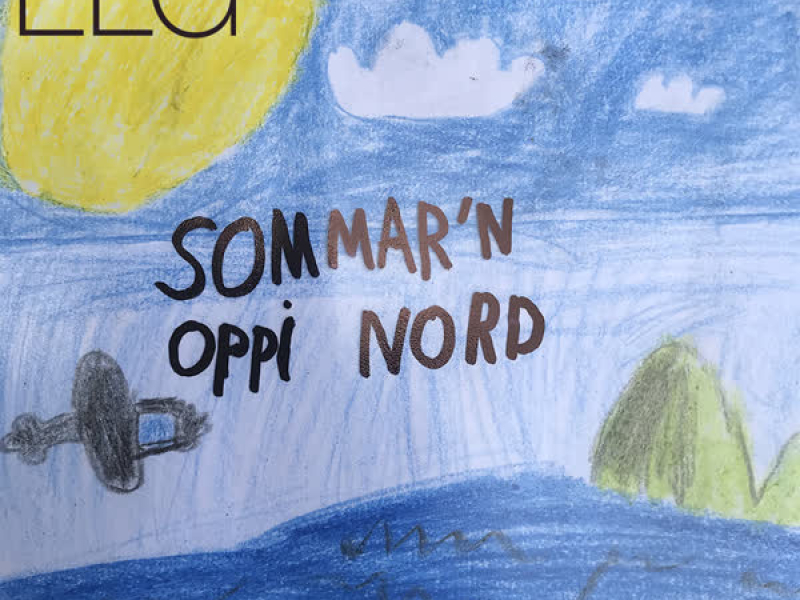 SOMMAR'N
OPPi NORD